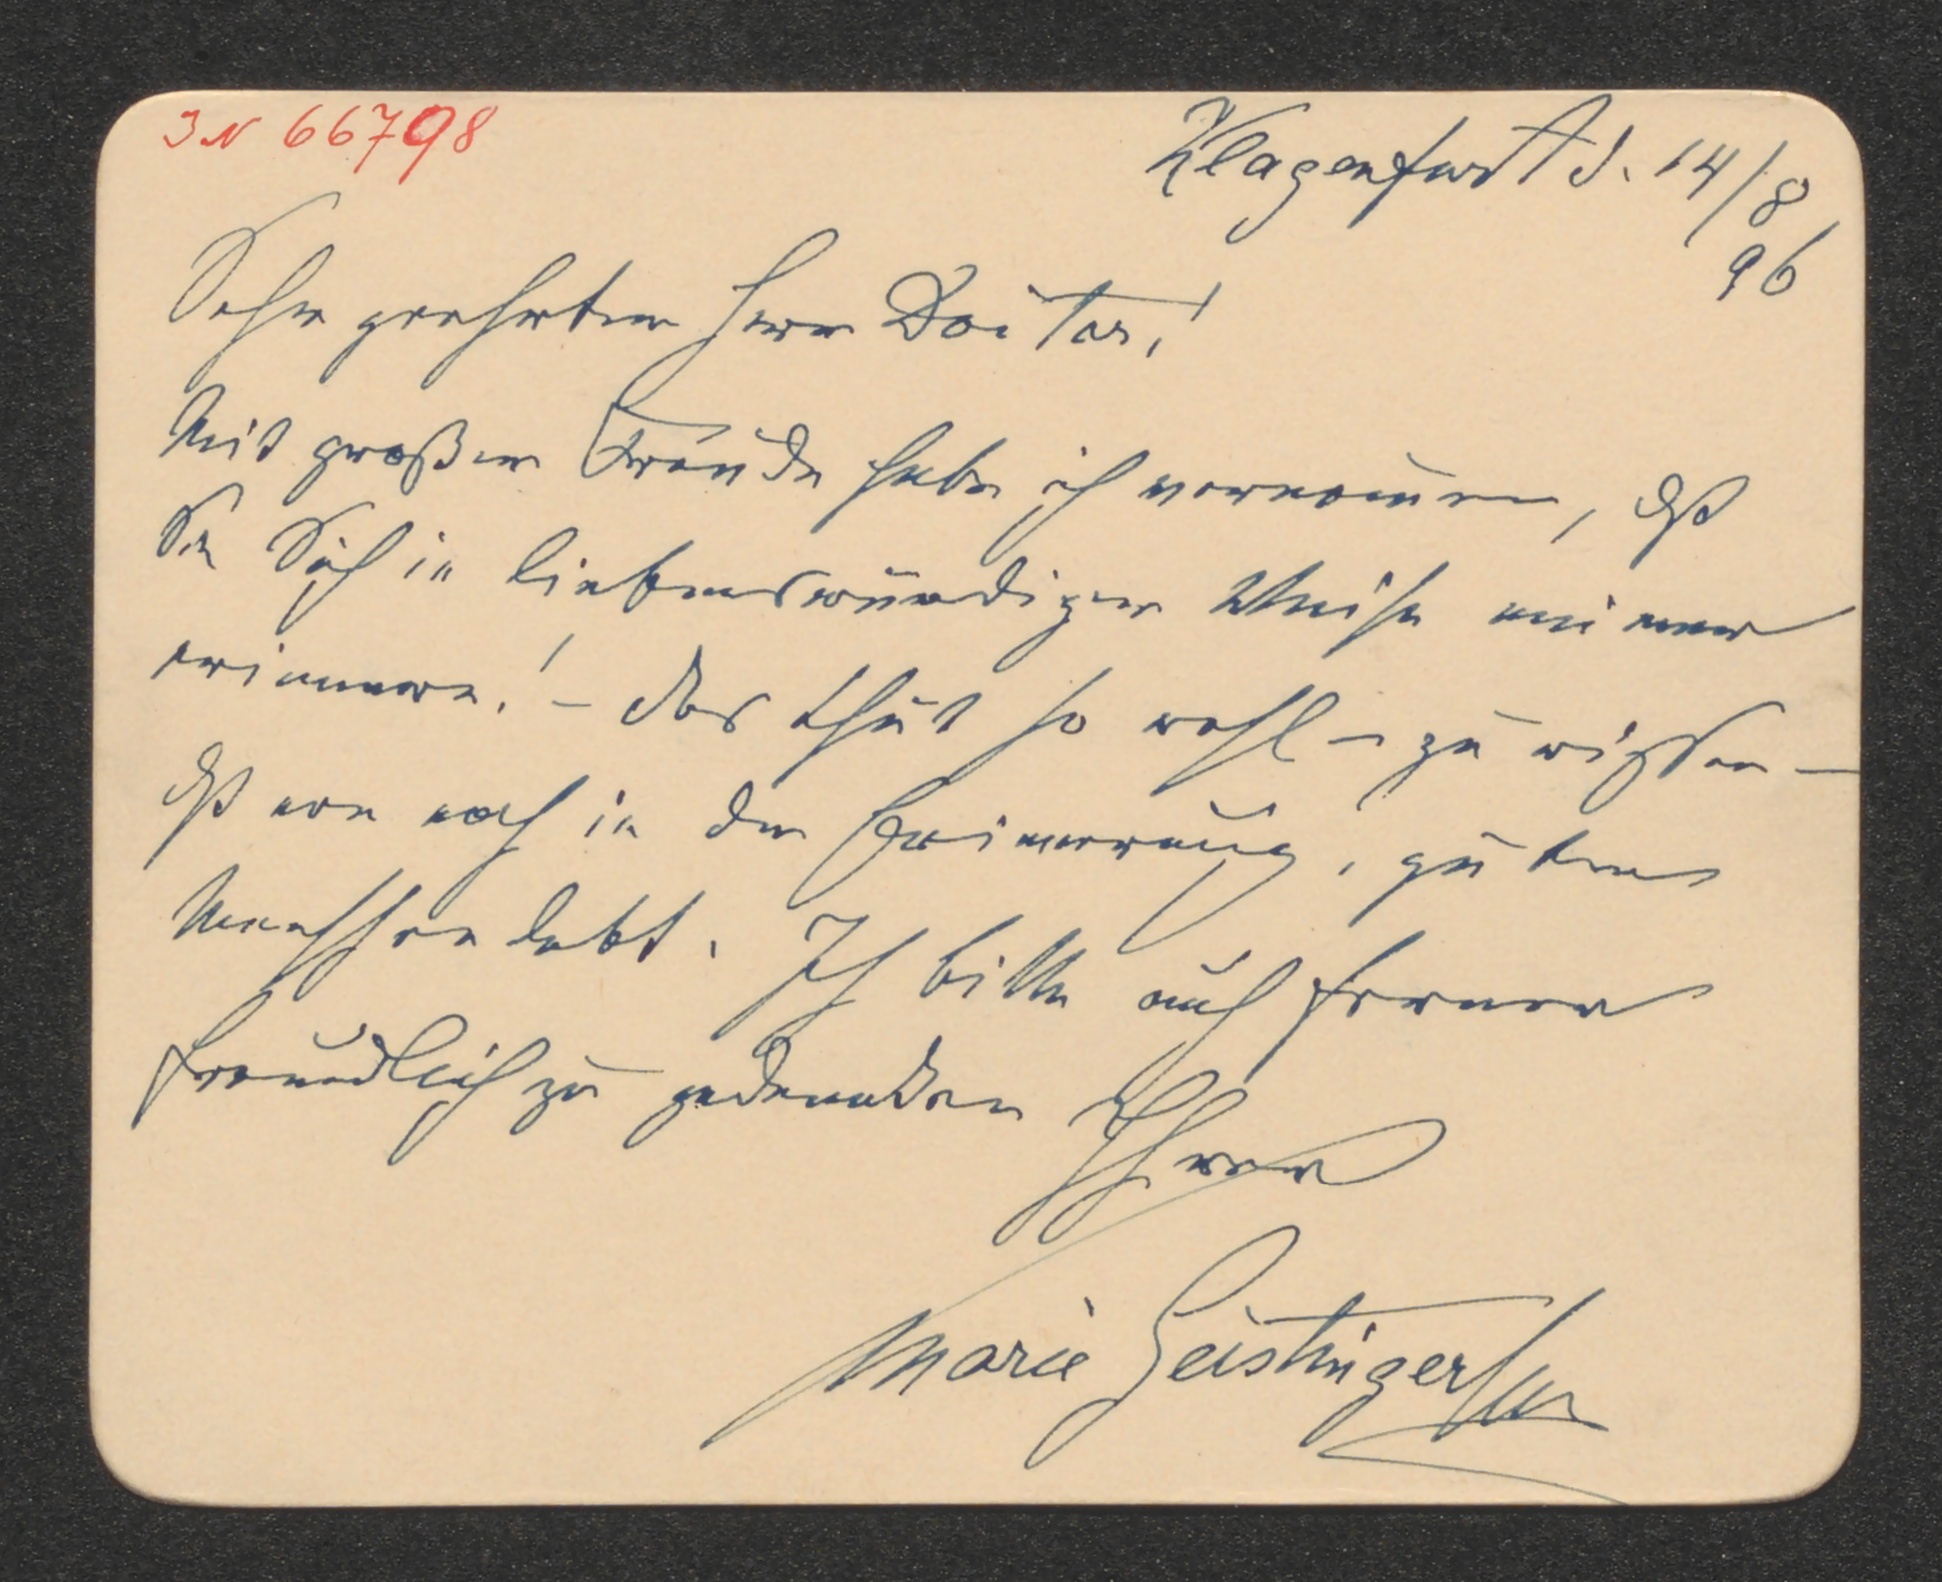 IN 66798
Klagenfurt d. 14/8
96
Sehr geehrter Herr Doctor!
Mit großer Freude habe ich vernommen, dß
Sie Sich in liebenswürdiger Weise meiner
erinnern! – das thut so wohl – zu wißen –
dß man noch in der Erinnerung, guter
Menschen lebt. Ich bitte auch ferner
freundlich zu gedenken
Ihrer
Marie Geistinger